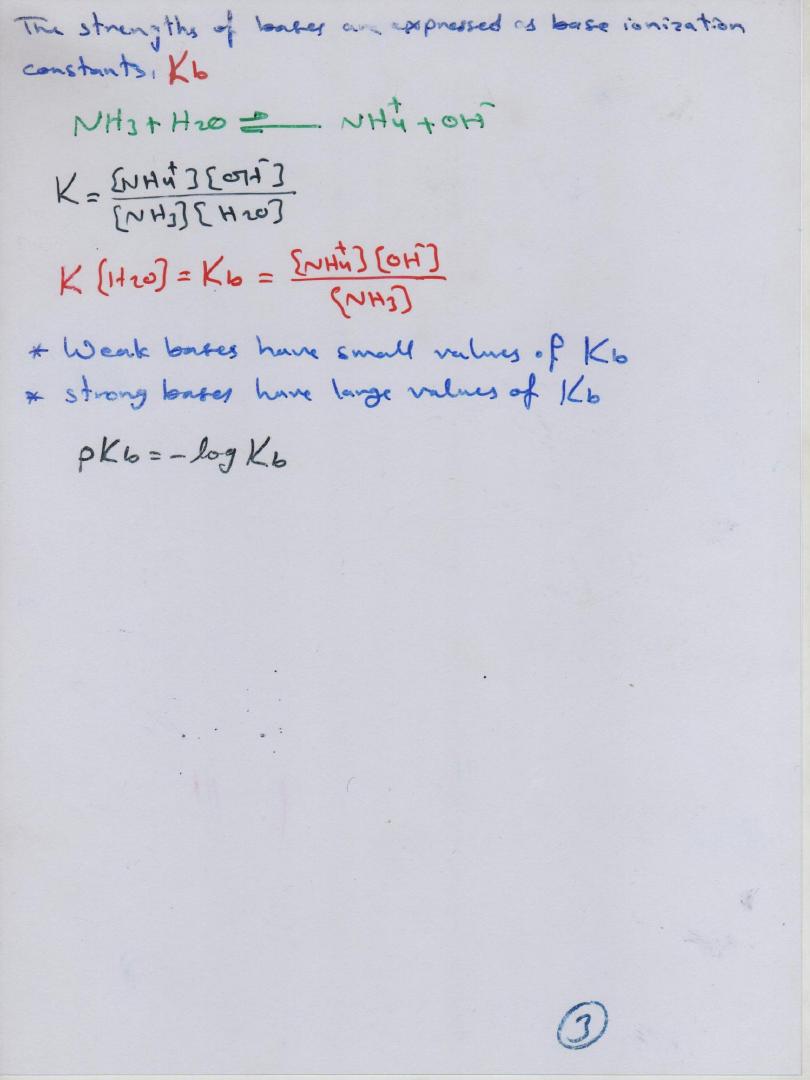 The strengths of bases are expressed as base ionization
constants, Kb
NH3 + H2O ⇌ NH4+ + OH-
K = [NH4+][OH-] / [NH3][H2O]
K [H2O] = Kb = [NH4+][OH-] / [NH3]
* Weak bases have small values of Kb
* strong bases have large values of Kb
pKb = - log Kb
3